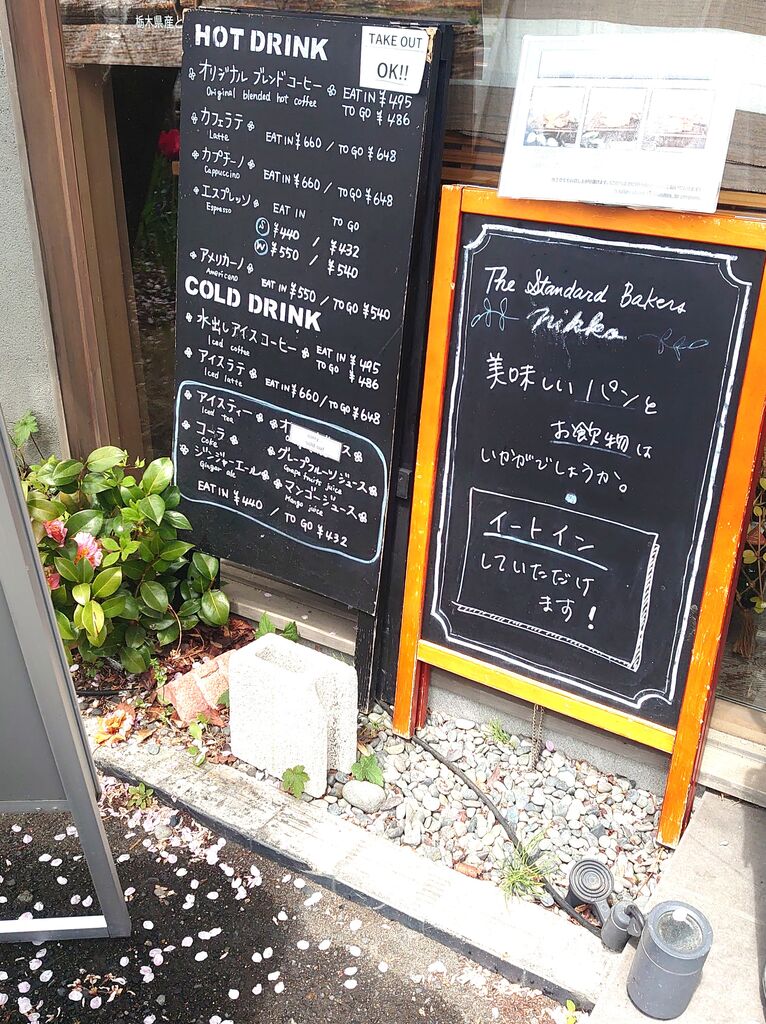 栃木県産と
HOT DRINK
TAKE OUT
OK!!
オリジナル ブレンドコーヒー
Original blended hot coffee
EAT IN ¥495
TO GO ¥486
カフェラテ
Latte
EAT IN ¥660 / TO GO ¥648
カプチーノ
Cappuccino
EAT IN ¥660 / TO GO ¥648
エスプレッソ
Espresso
EAT IN TO GO
S ¥440 / ¥432
W ¥550 / ¥540
アメリカーノ
Americano
EAT IN ¥550 / TO GO ¥540
COLD DRINK
水出しアイスコーヒー
Iced coffee
EAT IN ¥495
TO GO ¥486
アイスラテ
Iced latte
EAT IN ¥660 / TO GO ¥648
アイスティー
Iced tea
コーラ
Coke
ジンジャーエール
Ginger ale
グレープフルーツジュース
Grape fruits juice
マンゴージュース
Mango juice
EAT IN ¥440 / TO GO ¥432
The Standard Bakers
nikko
美味しいパンと
お飲物は
いかがでしょうか。
イートイン
していただけ
ます!